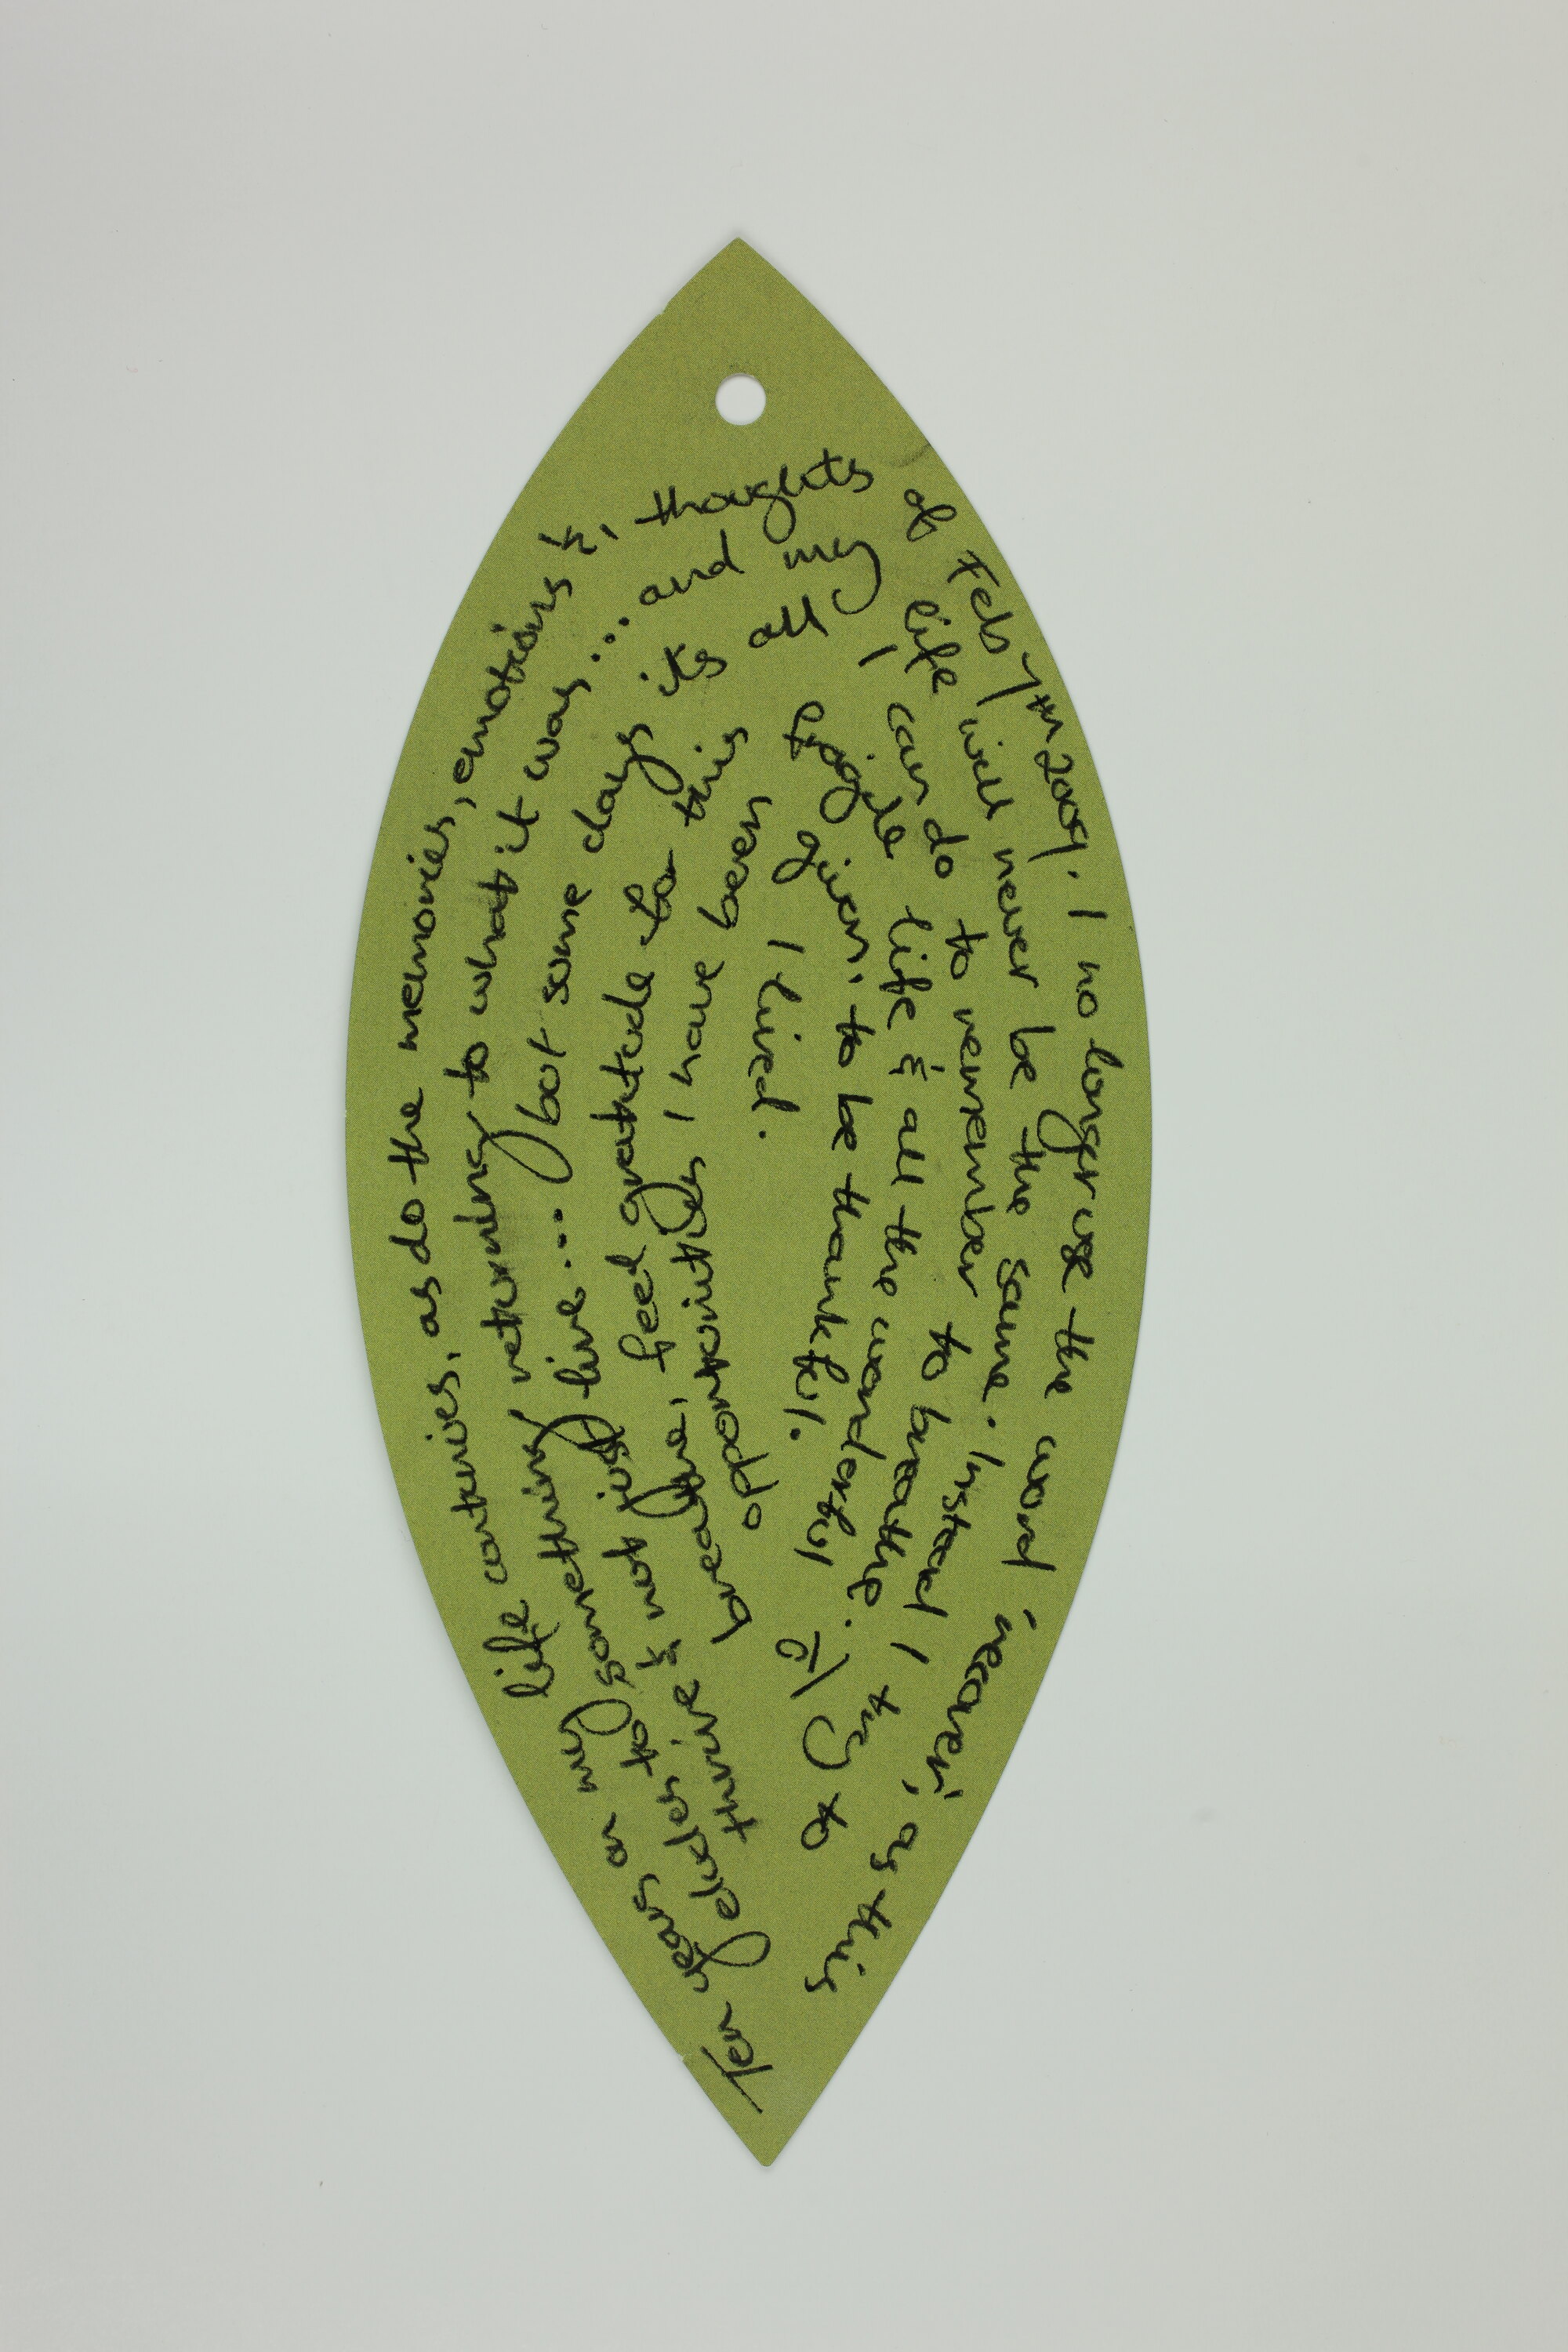 Ten years on my life continues, as do the memories, emotions &, thoughts of Feb 7th 2009. I no longer use the word 'recover', as this
eludes to something, returning to what it was... and my life will never be the same. Instead I try to
thrive & not just live... but some days its all I can do to remember to breathe.
breathe, feel gratitude for this fragile life & all the wonderful
opportunities I have been given, to be thankful.
I lived.